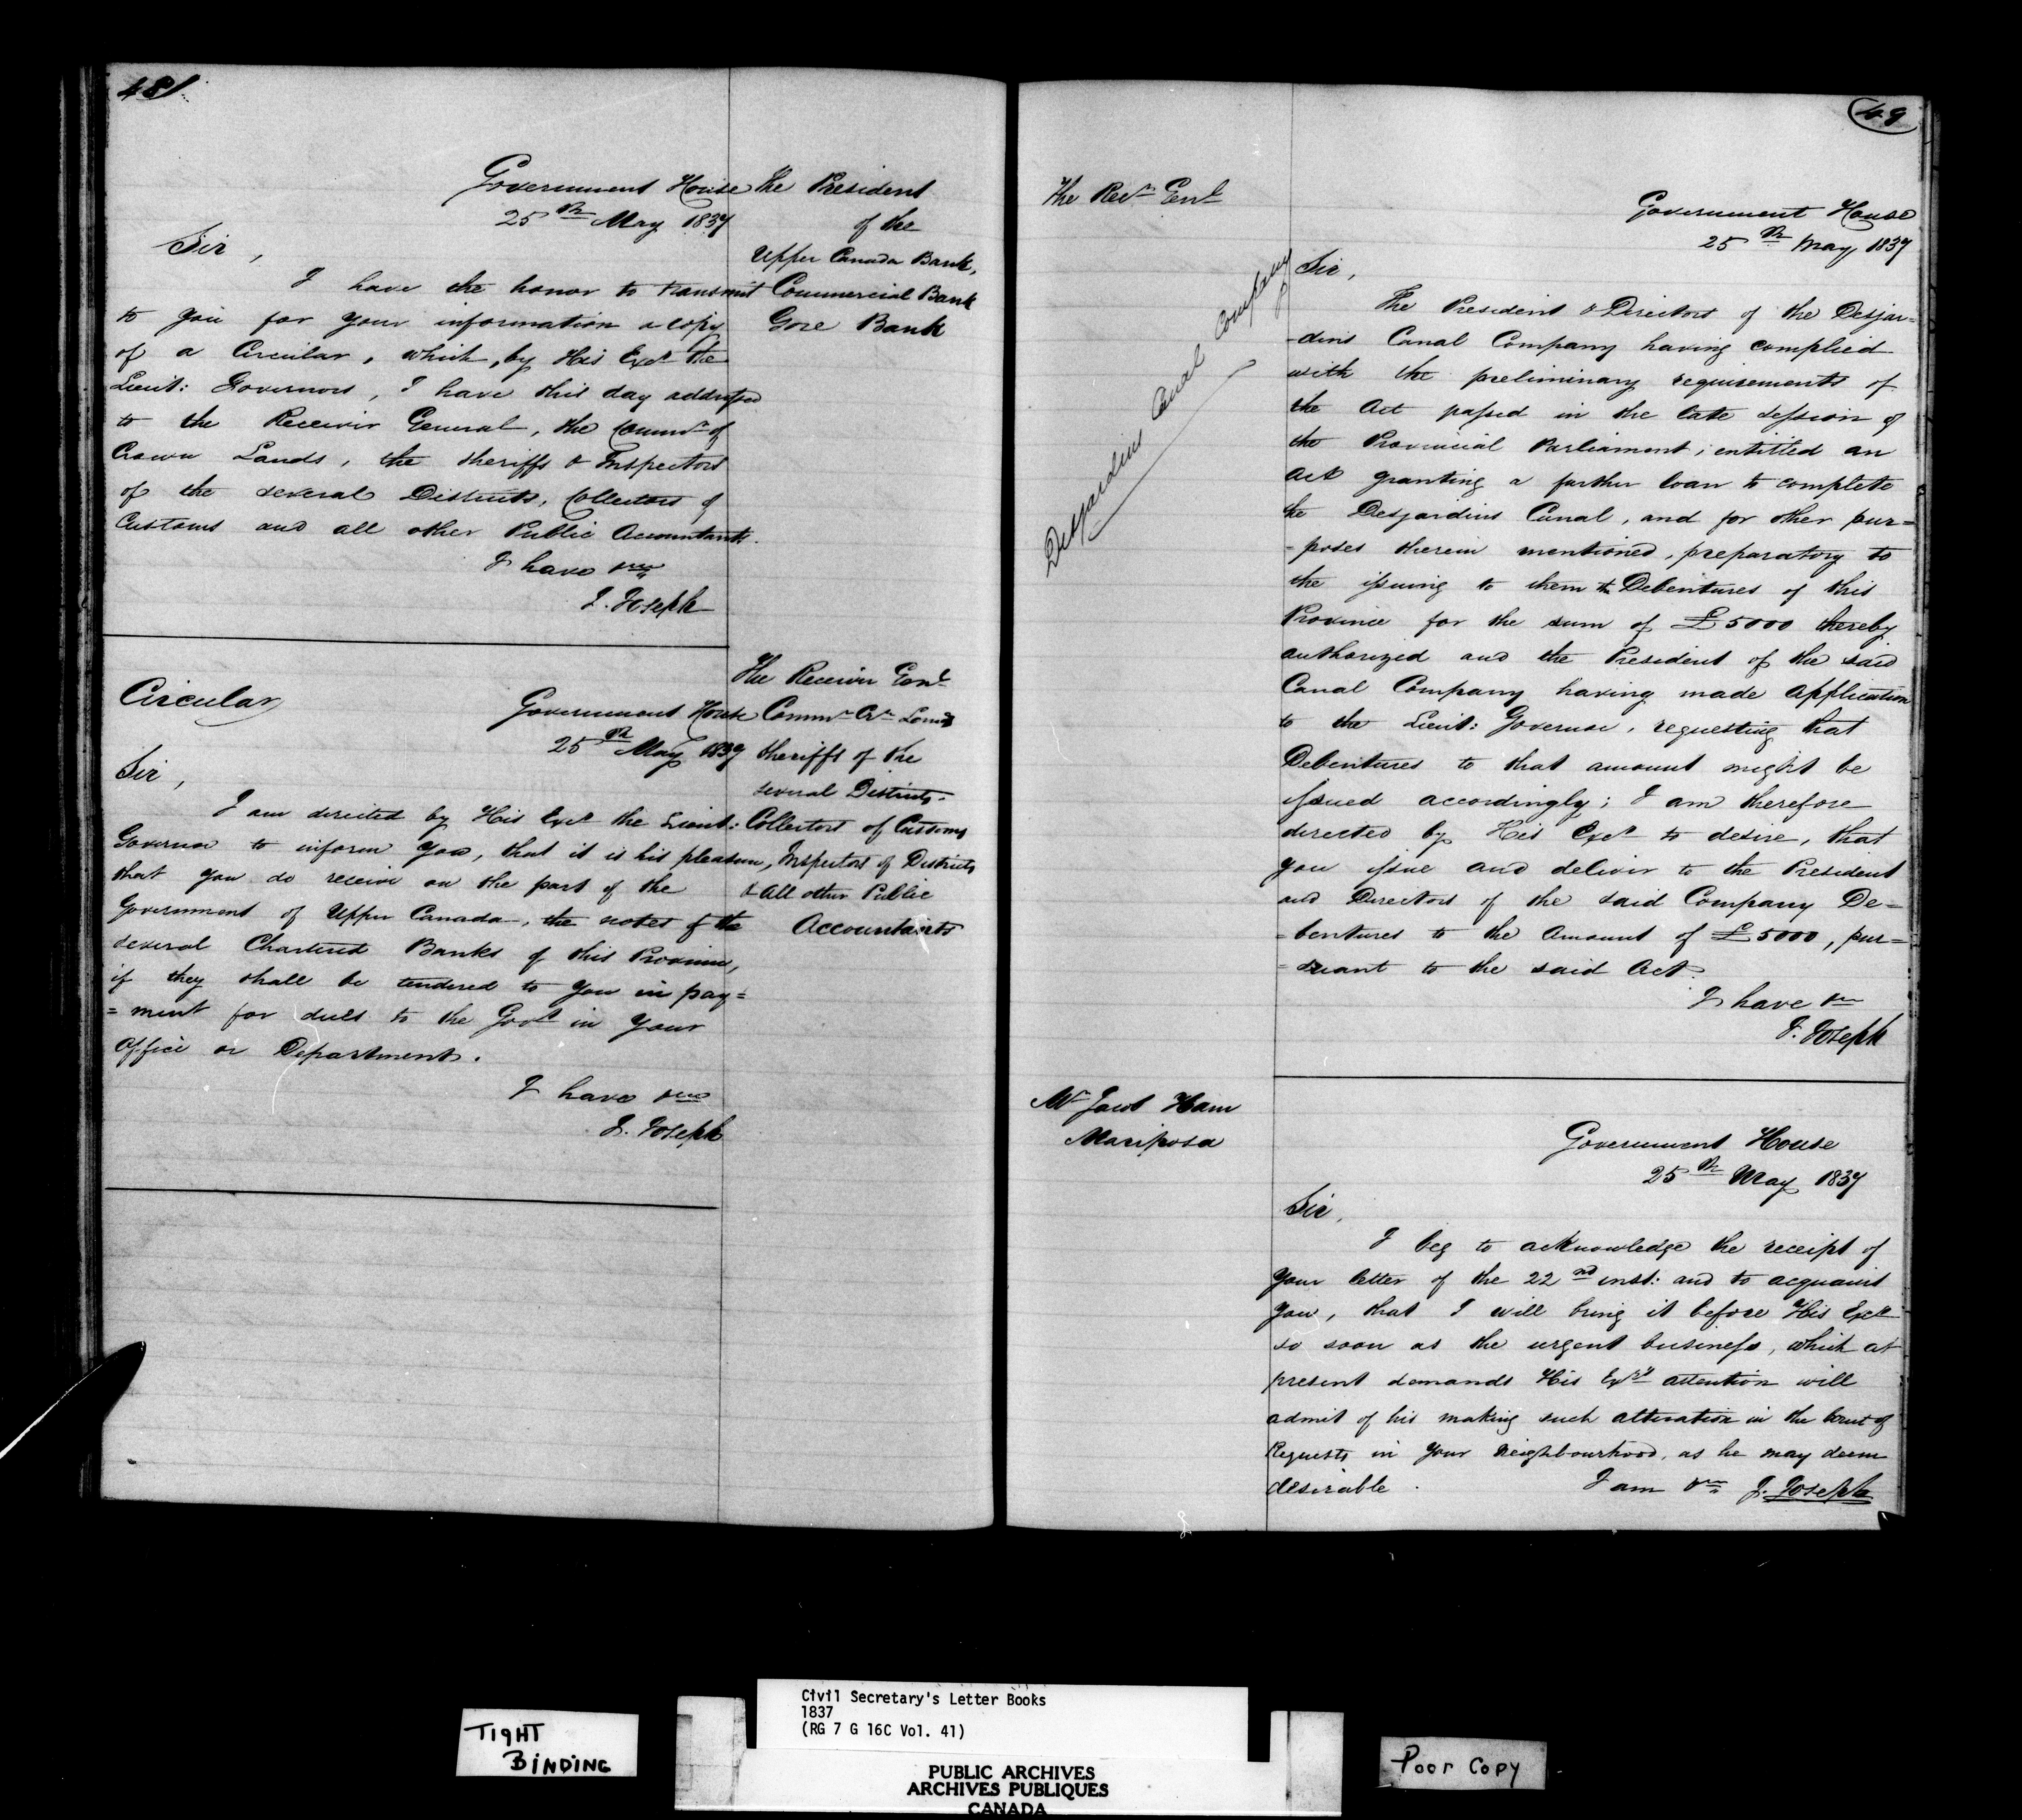 48
Government House
25th May 1837
The President
of the
Upper Canada Bank,
Commercial Bank
Gore Bank
Sir,
I have the honor to transmit
to you for your information a copy
of a Circular, which, by His Excy the
Lieut: Governors, I have this day addressed
to the Receivir General, the Commr of
Crown Lands, the Sheriffs & Inspectors
of the several Districts, Collectors of
Customs and all other Public Accountants.
I have &c
J. Joseph
Circular
Government House
25th May 1837
The Receivir Genl
Commr Cr Lands
Sheriffs of the
several Districts.
Collectors of Customs
Inspectors of Districts
& all other Public
Accountants
Sir,
I am directed by His Excy the Lieut:
Governor to inform you, that it is his pleasure,
that you do receive on the part of the
Government of Upper Canada, the notes of the
several Chartered Banks of this Province,
if they shall be tendered to you in pay=
=ment for dues to the Govt in your
Office or Department.
I have &c
J. Joseph
49
The Recr Genl
Desjardins Canal Company
Government House
25th May 1837
Sir,
The President & Directors of the Desjar=
-dins Canal Company having complied
with the preliminary requirements of
the Act passed in the late Session of
the Provincial Parliament; entitled an
Act granting a further loan to complete
the Desjardins Canal, and for other pur=
-poses therein mentioned, preparatory to
the issuing to them Debentures of this
Province for the sum of £5000 thereby
authorized and the President of the said
Canal Company having made application
to the Lieut: Governor, requesting that
Debentures to that amount might be
issued accordingly; I am therefore
directed by His Excy to desire, that
you issue and deliver to the President
and Directors of the said Company De=
=bentures to the Amount of £5000, pur=
=suant to the said Act.
I have &c
J. Joseph
Mr Jacob Ham
Mariposa
Government House
25th May 1837
Sir,
I beg to acknowledge the receipt of
your letter of the 22nd inst: and to acquaint
you, that I will bring it before His Excy
so soon as the urgent business, which at
present demands His Exy's attention will
admit of his making such alteration in the Court of
Requests in your neighbourhood, as he may deem
desirable.
I am &c J. Joseph
TIGHT
BINDING
Civil Secretary's Letter Books
1837
(RG 7 G 16C Vol. 41)
PUBLIC ARCHIVES
ARCHIVES PUBLIQUES
CANADA
Poor Copy